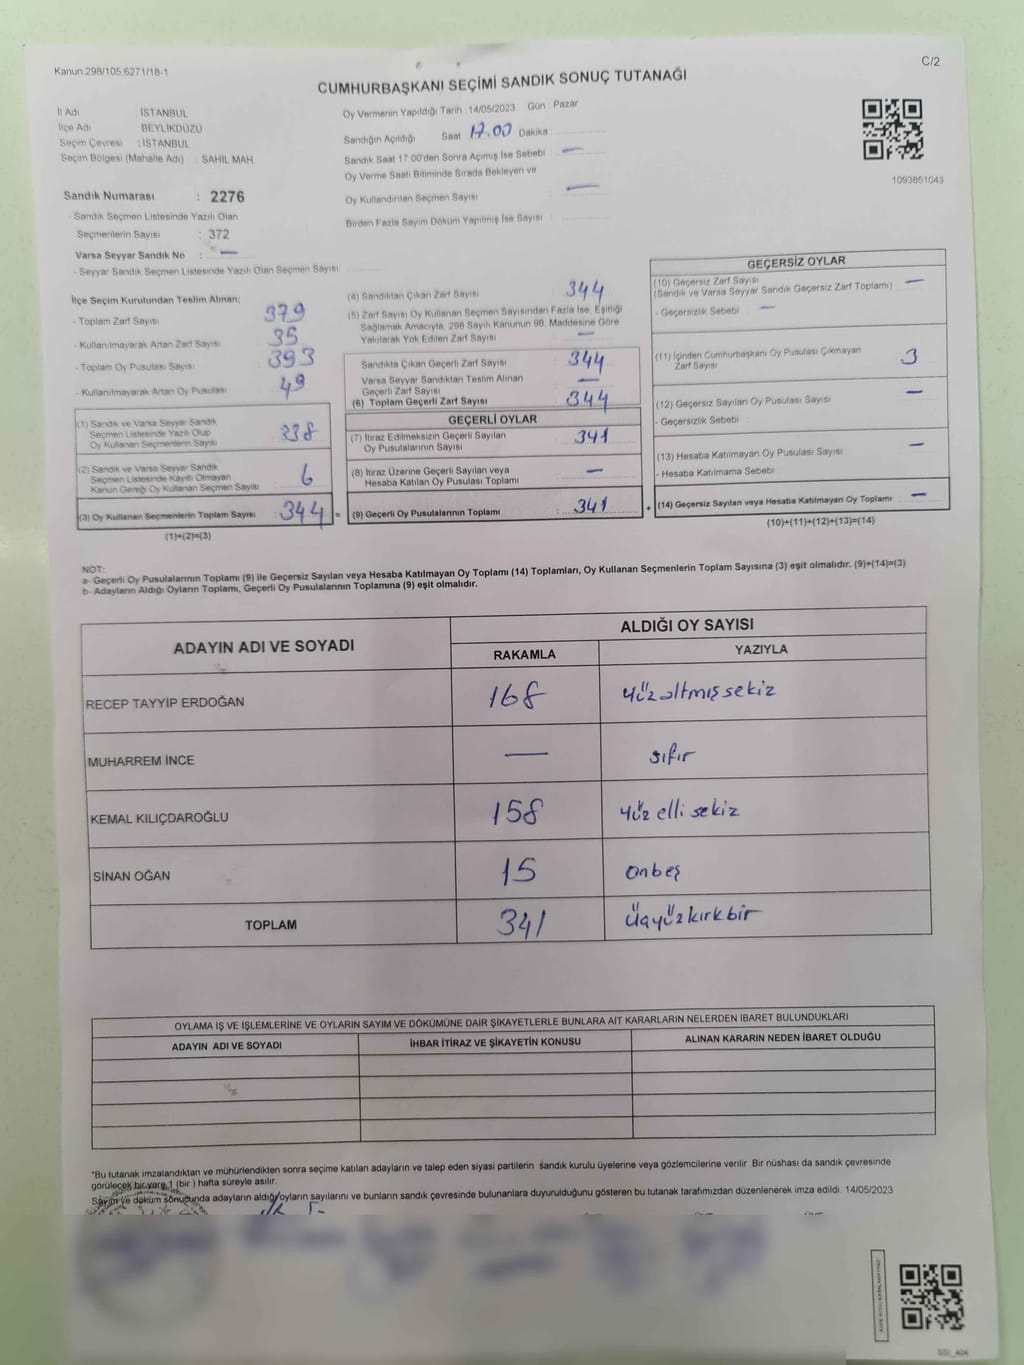 Kanun:298/105,6271/18-1
C/2
CUMHURBAŞKANI SEÇİMİ SANDIK SONUÇ TUTANAĞI
İl Adı İSTANBUL
İlçe Adı BEYLİKDÜZÜ
Seçim Çevresi : İSTANBUL
Seçim Bölgesi (Mahalle Adı) SAHİL MAH
Oy Vermenin Yapıldığı Tarih : 14/05/2023 Gün : Pazar
Sandığın Açıldığı Saat 17.00 Dakika :
Sandık Saat 17:00'den Sonra Açımış İse Sebebi : —
Oy Verme Saati Bitiminde Sırada Bekleyen ve
Oy Kullandırılan Seçmen Sayısı —
Birden Fazla Sayım Döküm Yapılmış İse Sayısı :
1093851043
Sandık Numarası : 2276
- Sandık Seçmen Listesinde Yazılı Olan
Seçmenlerin Sayısı : 372
Varsa Seyyar Sandık No : —
- Seyyar Sandık Seçmen Listesinde Yazılı Olan Seçmen Sayısı
İlçe Seçim Kurulundan Teslim Alınan;
- Toplam Zarf Sayısı 379
- Kullanılmayarak Artan Zarf Sayısı 35
- Toplam Oy Pusulası Sayısı 393
- Kullanılmayarak Artan Oy Pusulası 49
(1) Sandık ve Varsa Seyyar Sandık
Seçmen Listesinde Yazılı Olup
Oy Kullanan Seçmenlerin Sayısı 338
(2) Sandık ve Varsa Seyyar Sandık
Seçmen Listesinde Kayıtlı Olmayan
Kanun Gereği Oy Kullanan Seçmen Sayısı 6
(3) Oy Kullanan Seçmenlerin Toplam Sayısı 344 =
(1)+(2)=(3)
(4) Sandıktan Çıkan Zarf Sayısı 344
(5) Zarf Sayısı Oy Kullanan Seçmen Sayısından Fazla İse, Eşitliği
Sağlamak Amacıyla; 298 Sayılı Kanunun 98. Maddesine Göre
Yakılarak Yok Edilen Zarf Sayısı —
Sandıkta Çıkan Geçerli Zarf Sayısı 344
Varsa Seyyar Sandıktan Teslim Alınan
Geçerli Zarf Sayısı —
(6) Toplam Geçerli Zarf Sayısı 344
GEÇERLİ OYLAR
(7) İtiraz Edilmeksizin Geçerli Sayılan
Oy Pusulalarının Sayısı 341
(8) İtiraz Üzerine Geçerli Sayılan veya
Hesaba Katılan Oy Pusulası Toplamı —
(9) Geçerli Oy Pusulalarının Toplamı : 341 +
GEÇERSİZ OYLAR
(10) Geçersiz Zarf Sayısı —
(Sandık ve Varsa Seyyar Sandık Geçersiz Zarf Toplamı)
- Geçersizlik Sebebi : —
(11) İçinden Cumhurbaşkanı Oy Pusulası Çıkmayan
Zarf Sayısı 3
(12) Geçersiz Sayılan Oy Pusulası Sayısı —
- Geçersizlik Sebebi :
(13) Hesaba Katılmayan Oy Pusulası Sayısı —
- Hesaba Katılmama Sebebi :
(14) Geçersiz Sayılan veya Hesaba Katılmayan Oy Toplamı —
(10)+(11)+(12)+(13)=(14)
NOT:
a- Geçerli Oy Pusulalarının Toplamı (9) ile Geçersiz Sayılan veya Hesaba Katılmayan Oy Toplamı (14) Toplamları, Oy Kullanan Seçmenlerin Toplam Sayısına (3) eşit olmalıdır. (9)+(14)=(3)
b- Adayların Aldığı Oyların Toplamı, Geçerli Oy Pusulalarının Toplamına (9) eşit olmalıdır.
ADAYIN ADI VE SOYADI
ALDIĞI OY SAYISI
RAKAMLA YAZIYLA
RECEP TAYYİP ERDOĞAN 168 yüzaltmışsekiz
MUHARREM İNCE — sıfır
KEMAL KILIÇDAROĞLU 158 yüz elli sekiz
SİNAN OĞAN 15 onbeş
TOPLAM 341 üçyüzkırkbir
OYLAMA İŞ VE İŞLEMLERİNE VE OYLARIN SAYIM VE DÖKÜMÜNE DAİR ŞİKAYETLERLE BUNLARA AİT KARARLARIN NELERDEN İBARET BULUNDUKLARI
ADAYIN ADI VE SOYADI İHBAR İTİRAZ VE ŞİKAYETİN KONUSU ALINAN KARARIN NEDEN İBARET OLDUĞU
*Bu tutanak imzalandıktan ve mühürlendikten sonra seçime katılan adayların ve talep eden siyasi partilerin sandık kurulu üyelerine veya gözlemcilerine verilir. Bir nüshası da sandık çevresinde
görülecek bir yere 1 (bir ) hafta süreyle asılır.
Sayım ve döküm sonucunda adayların aldığı oyların sayılarını ve bunların sandık çevresinde bulunanlara duyurulduğunu gösteren bu tutanak tarafımızdan düzenlenerek imza edildi. 14/05/2023